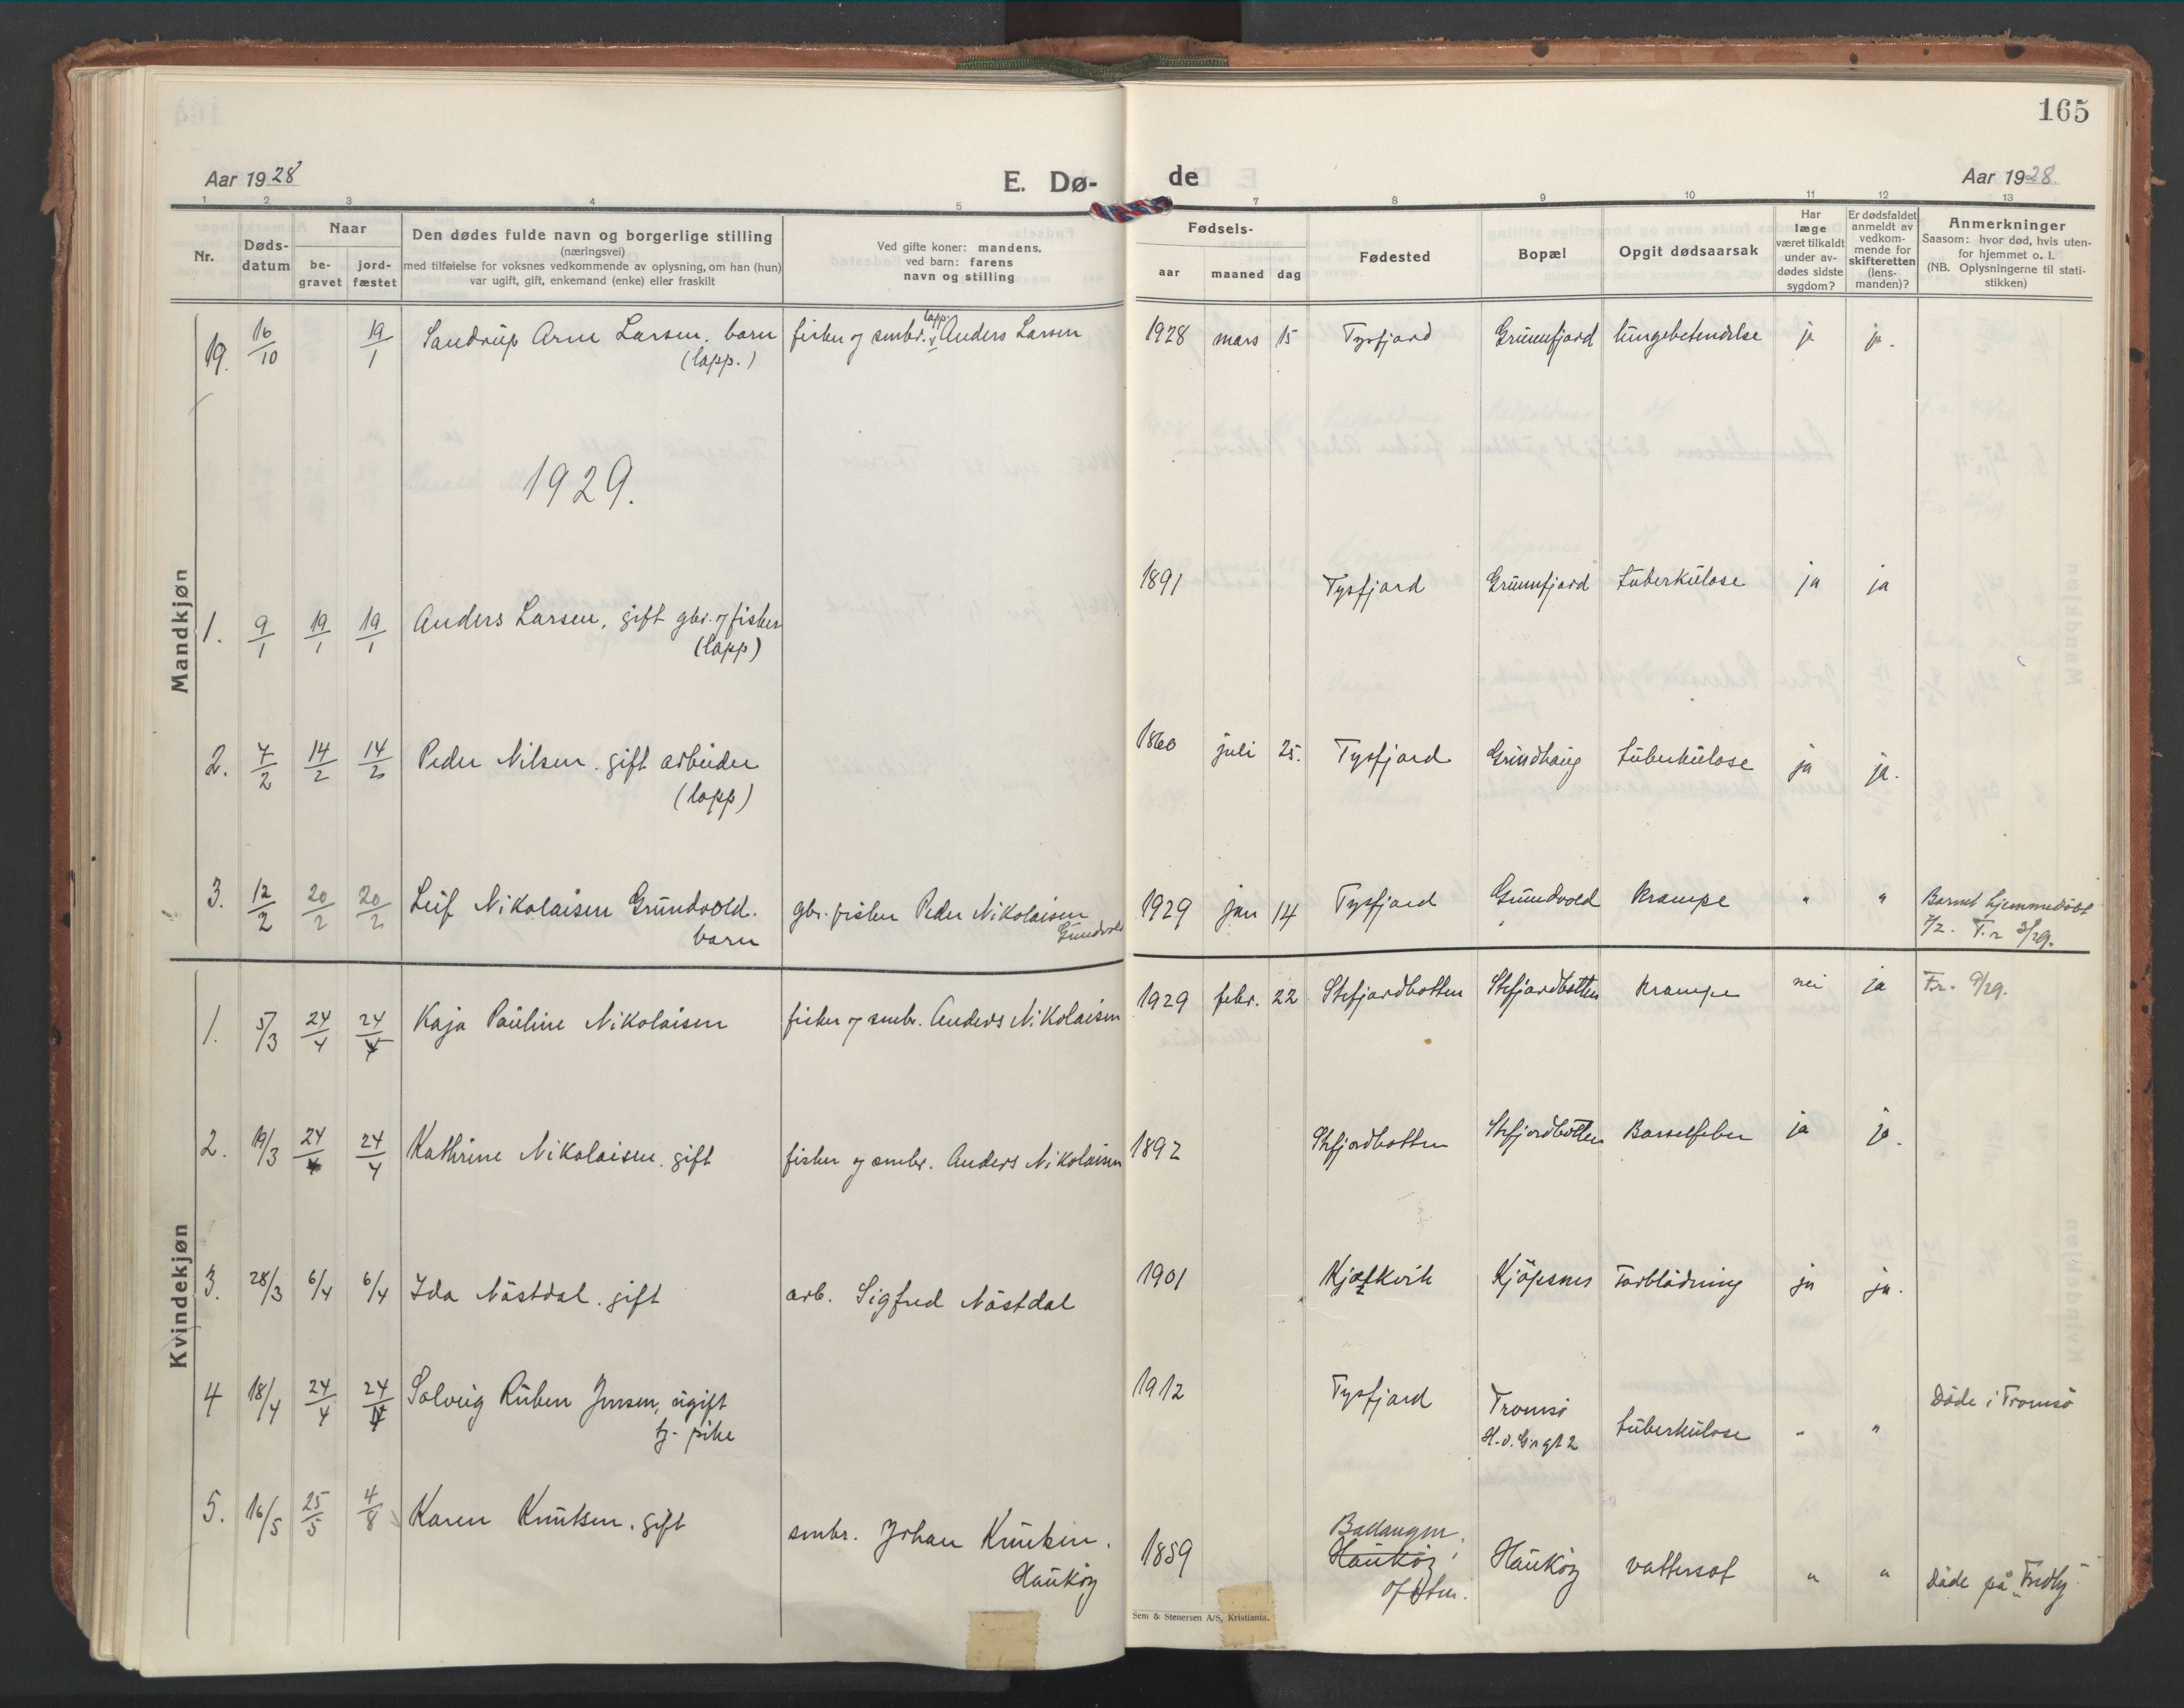 165
Aar 1928 E. Dø- de Aar 1928
1 2 3 4 5 7 8 9 10 11 12 13
Nr. Døds-datum Naar be-gravet jord-fæstet Den dødes fulde navn og borgerlige stilling (næringsvei) med tilføielse for voksnes vedkommende av oplysning, om han (hun) var ugift, gift, enkemand (enke) eller fraskilt Ved gifte koner: mandens, ved barn: farens navn og stilling Fødsels- aar maaned dag Fødested Bopæl Opgit dødsaarsak Har læge været tilkaldt under av-dødes sidste sygdom? Er dødsfaldet anmeldt av vedkom-mende for skifteretten (lens-manden)? Anmerkninger Saasom: hvor død, hvis uten-for hjemmet o. l. (NB. Oplysningerne til stati-stikken)
Mandkjøn
19. 16/10 19/1 Sandrup Arne Larsen, barn fisker og smbr. lapp. Anders Larsen 1928 mars 15 Tysfjord Grunnfjord lungebetendelse ja ja.
(lapp.)
1929.
1. 9/1 19/1 19/1 Anders Larsen, gift gbr. og fisker 1891 Tysfjord Grunnfjord Tuberkulose ja ja
(lapp)
2. 7/2 14/2 14/2 Peder Nilsen. gift arbeider 1860 juli 25. Tysfjord Grundhaug Tuberkulose ja ja.
(lapp)
3. 12/2 20/2 20/2 Leif Nikolaisen Grundvold. gbr. fisker Peder Nikolaisen 1929 jan 14 Tysfjord Grundvold Krampe " " Barnet hjemmedöbt
barn Grundvold 7/2. F.r 3/29.
Kvindekjøn
1. 5/3 24/4 24/4 Kaja Pauline Nikolaisen fisker og smbr. Anders Nikolaisen 1929 febr. 22 Stefjordbotten Stefjordbotten Krampe nei ja Fr. 9/29.
2. 19/3 24/4 24/4 Kathrine Nikolaisen. gift fisker og smbr. Anders Nikolaisen 1892 Stefjordbotten Stefjordbotten Barselfeber ja ja.
3. 28/3 6/4 6/4 Ida Nästdal. gift arb. Sigfred Nästdal 1901 Kjøpsnes Forblödning ja ja.
4 18/4 24/4 24/4 Solveig Ruben Jensen, ugift 1912 Tysfjord Tromsö Tuberkulose " " Döde i Tromsö
tj. pike
5. 16/5 25/5 4/8 Karen Knutsen. gift smbr. Johan Knutsen. 1859 Ballangen, Haukøy Haukøy vattersot " " Döde på "Fredly"
Haukøy Ofoten.
Sem & Stenersen A/S, Kristiania.